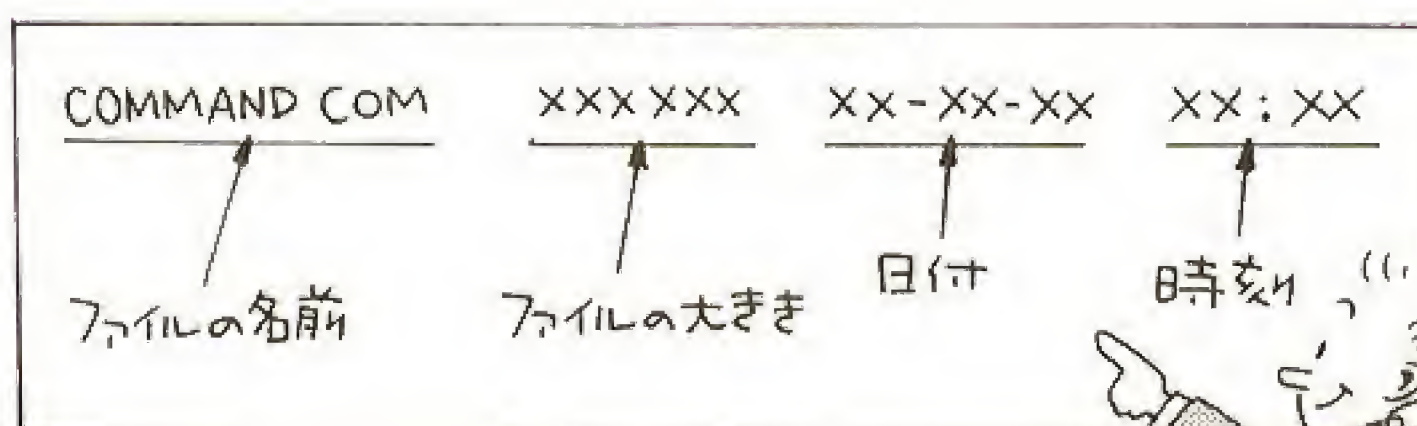 COMMAND COM XXXXXX XX-XX-XX XX:XX
ファイルの名前 ファイルの大きさ 日付 時刻